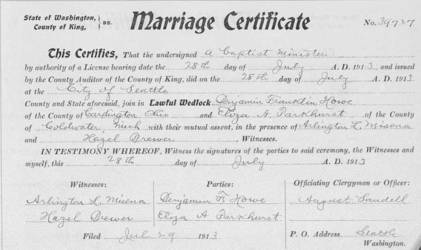 State of Washington, County of King, } ss. Marriage Certificate No. 39727
This Certifies, That the undersigned a Baptist Minister
by authority of a License bearing date the 28th day of July A. D. 1913, and issued
by the County Auditor of the County of King, did on the 28th day of July A. D. 1913
at the City of Seattle
County and State aforesaid, join in Lawful Wedlock Benjamin Franklin Howe
of the County of Cardington Ohio and Eliza A. Parkhurst of the County
of Coldwater, Mich with their mutual assent, in the presence of Arlington L. Misena
and Hazel Brewer, Witnesses.
IN TESTIMONY WHEREOF, Witness the signatures of the parties to said ceremony, the Witnesses and
myself, this 28th day of July A. D. 1913
Witnesses: Parties: Officiating Clergyman or Officer:
Arlington L. Misena Benjamin F. Howe August Sandell
Hazel Brewer Eliza A Parkhurst P. O. Address Seattle
Filed Jul 29 1913 Washington.